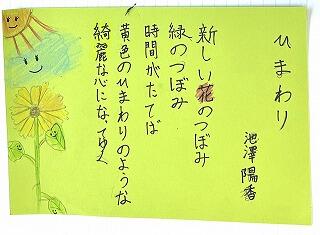 ひまわり
池澤陽香
新しい花のつぼみ
緑のつぼみ
時間がたてば
黄色のひまわりのような
綺麗な心になってゆく